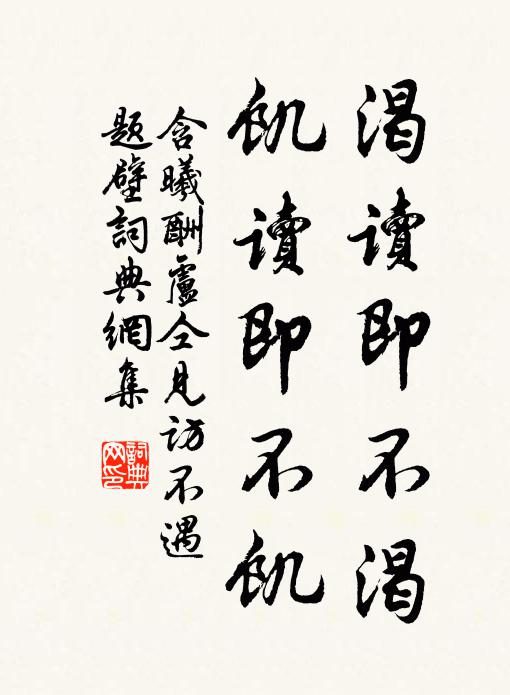 渴讀即不渴
飢讀即不飢
含曦酬盧仝見訪不遇
題壁詞典網集
詞典網印